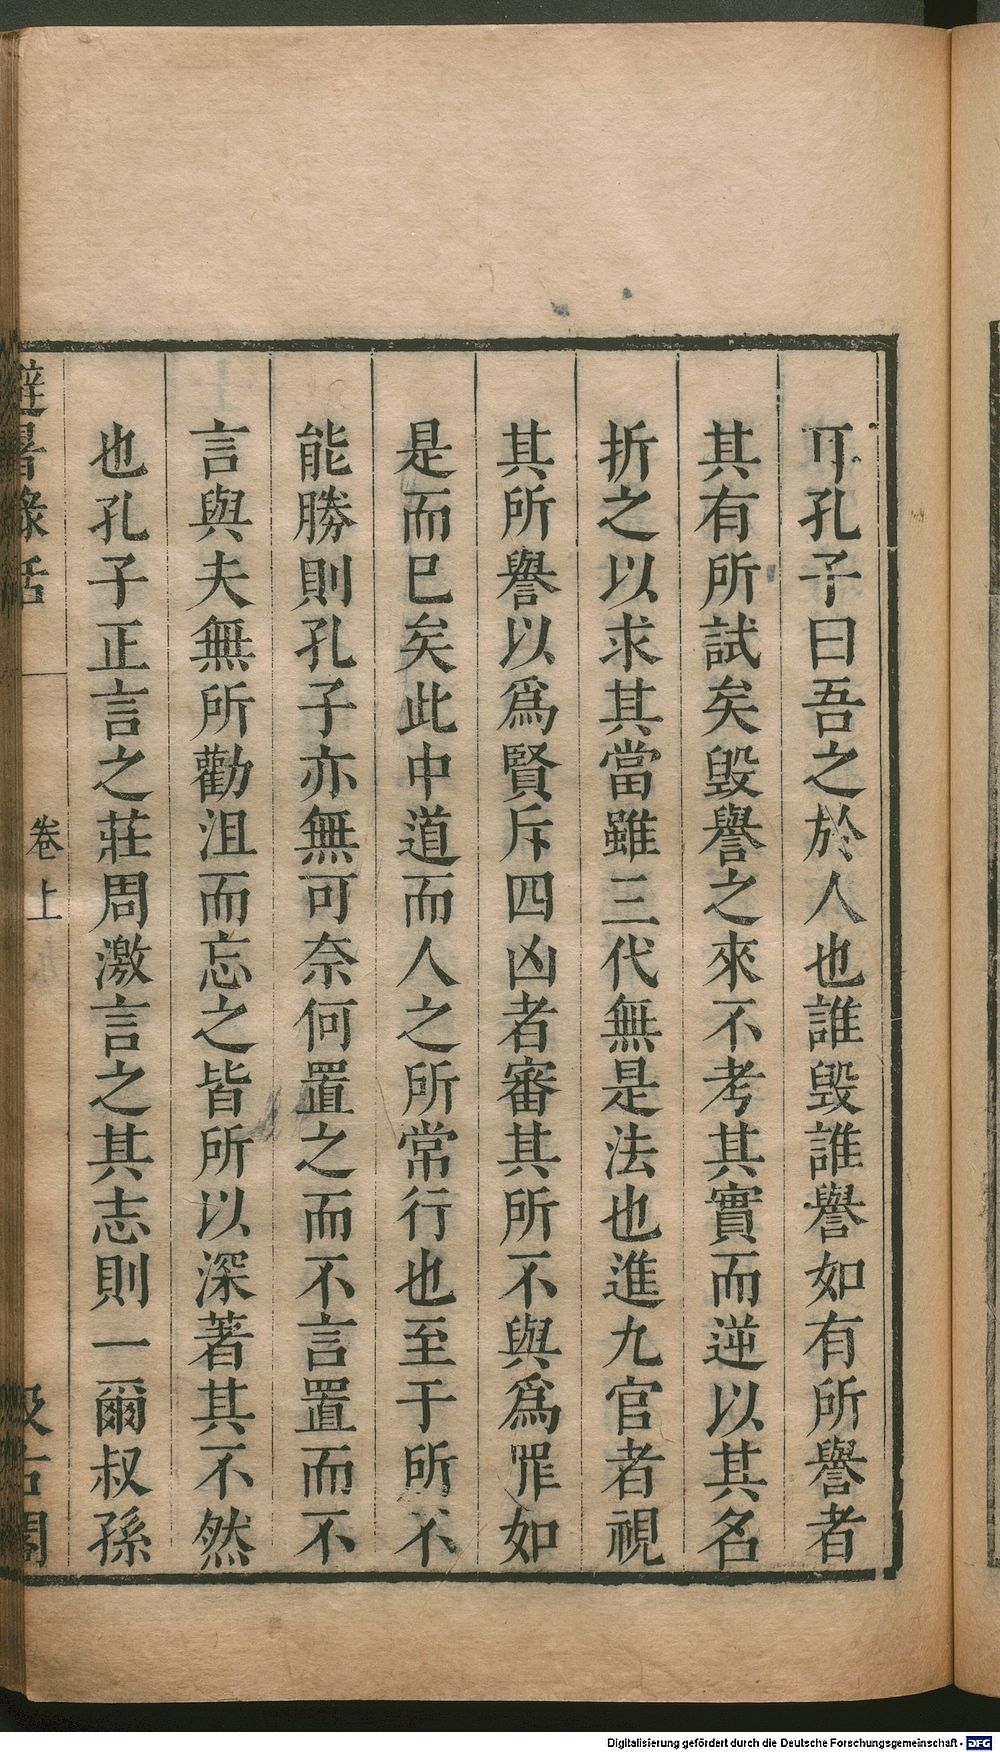 耳孔子曰吾之於人也誰毀誰譽如有所譽者
其有所試矣毀譽之來不考其實而逆以其名
折之以求其當雖三代無是法也進九官者視
其所譽以爲賢斥四凶者審其所不與爲罪如
是而已矣此中道而人之所常行也至于所不
能勝則孔子亦無可奈何置之而不言置而不
言與夫無所勸沮而忘之皆所以深著其不然
也孔子正言之莊周激言之其志則一爾叔孫
避暑錄話
卷上
汲古閣
Digitalisierung gefördert durch die Deutsche Forschungsgemeinschaft - DFG